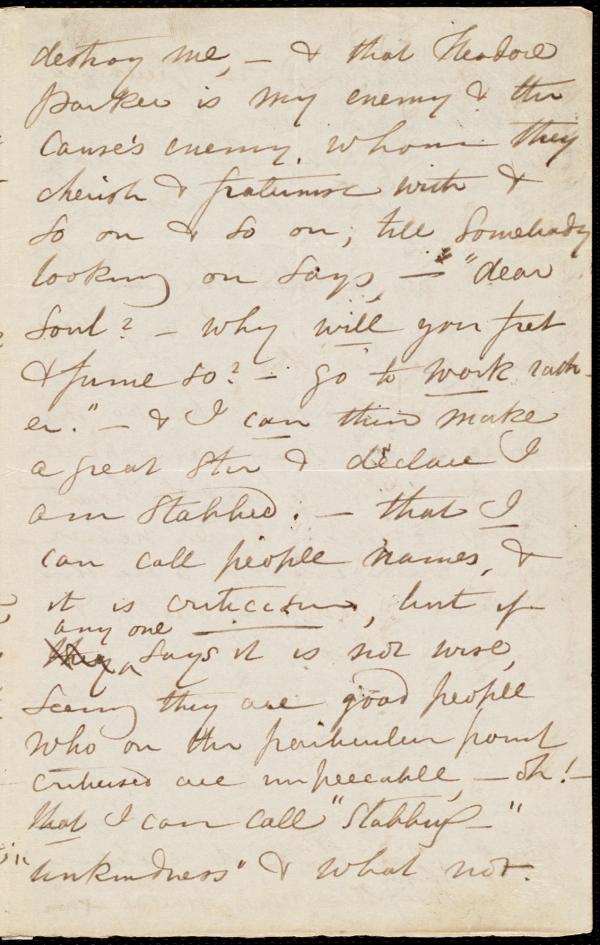 destroy me, — & that Theodore
Parker is my enemy & the
Cause's enemy, whom they
cherish & fraternise with &
so on & so on; till somebody
looking on says, — "dear
Soul? — why will you fret
& fume so? — go to work rath-
er." — & I can then make
a great stir & declare I
am stabbed. — that I
can call people names, &
it is criticism, but if
any one
says it is not wise,
seeing they are good people
who on the particular point
criticised are unpeccable, — oh! —
that I can call "stabbing" —
"unkindness" & what not.